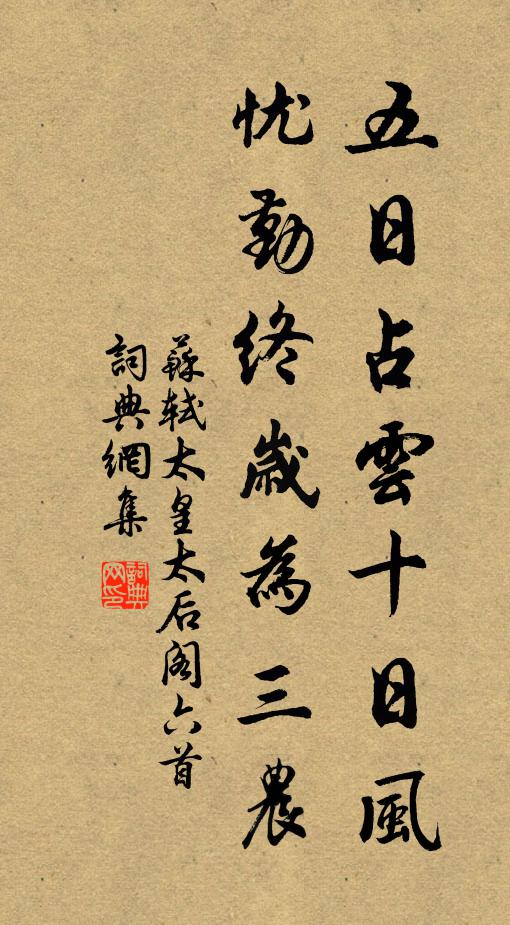 五日占雲十日風
忧勤終歲為三農
蘇軾太皇太后阁六首
詞典網集
詞典網印